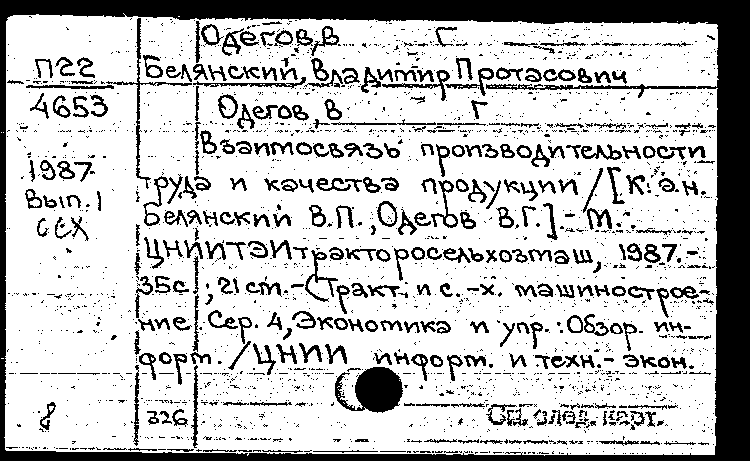 Одегов, В Г
П22
4653
1987
Вып. 1
ССХ
Белянский, Владимир Протасович,
Одегов, В Г
Взаимосвязь производительности
труда и качества продукции / [К. э. н.
Белянский В. П., Одегов В. Г.] - М.:
ЦНИИТЭИтракторосельхозмаш, 1987.-
35с.; 21 см.- (Тракт. и с.-х. машинострое-
ние. Сер. 4, Экономика и упр.: Обзор. ин-
форм. / ЦНИИ информ. и техн.- экон.
8
326
См. след. карт.